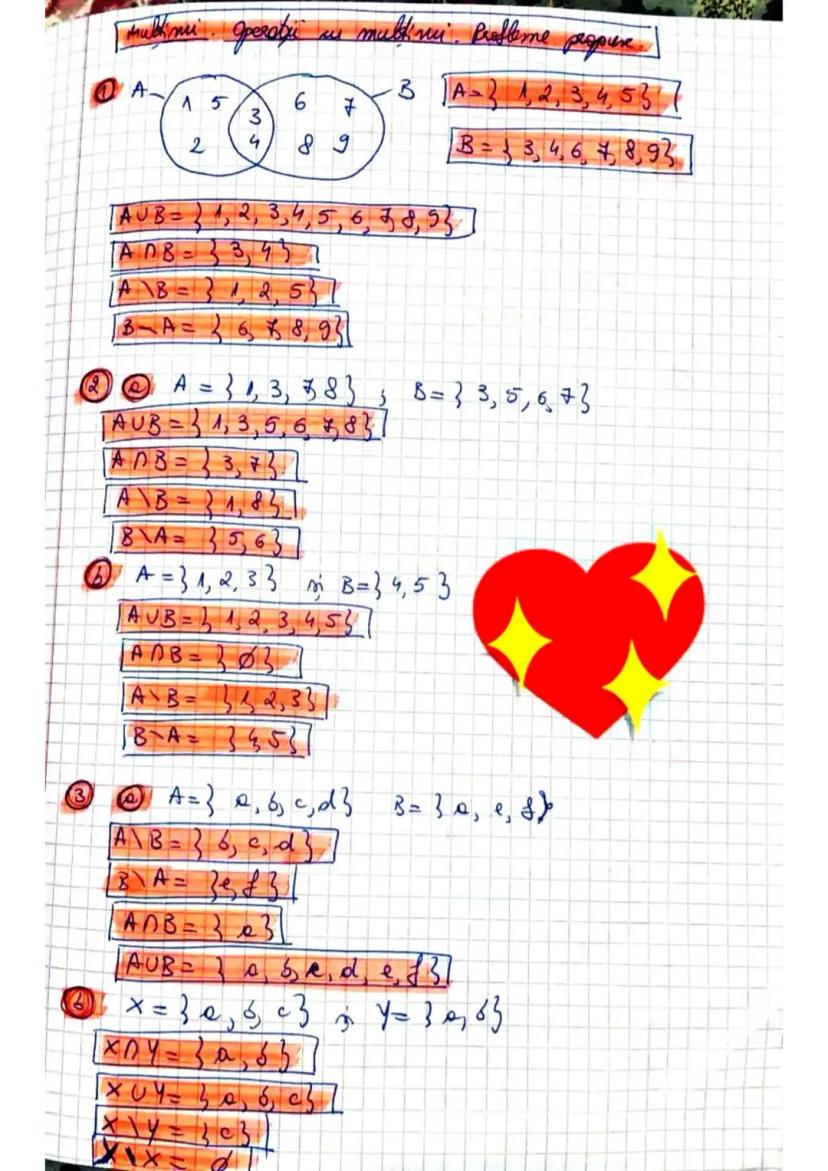 Mulțimi. Operații cu mulțimi. Probleme propuse.
① A B A={1,2,3,4,5}
1 5 3 6 7
2 4 8 9 B={3,4,6,7,8,9}
A∪B={1,2,3,4,5,6,7,8,9}
A∩B={3,4}
A\B={1,2,5}
B\A={6,7,8,9}
② a A={1,3,7,8}; B={3,5,6,7}
A∪B={1,3,5,6,7,8}
A∩B={3,7}
A\B={1,8}
B\A={5,6}
b A={1,2,3} și B={4,5}
A∪B={1,2,3,4,5}
A∩B={∅}
A\B={1,2,3}
B\A={4,5}
③ a A={a,b,c,d} B={a,e,f}
A\B={b,c,d}
B\A={e,f}
A∩B={a}
A∪B={a,b,c,d,e,f}
b X={a,b,c} și Y={a,b}
X∩Y={a,b}
X∪Y={a,b,c}
X\Y={c}
\X=∅